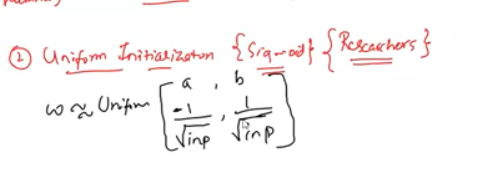 ② Uniform Initialization {Sigmoid} {Researchers}
a , b
w ≈ Uniform [ -1/√inp , 1/√inp ]